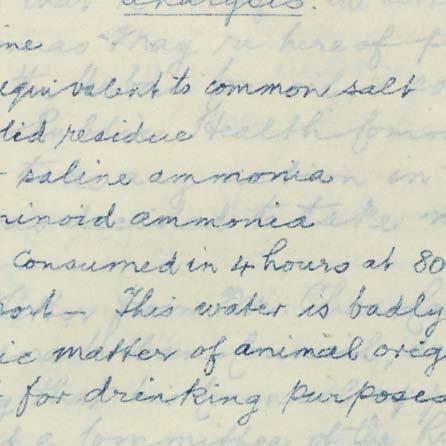 Analysis.
ine
equivalent to common salt
lid residue
saline ammonia
minoid ammonia
Consumed in 4 hours at 80
port - This water is badly
ic matter of animal orig
for drinking purposes